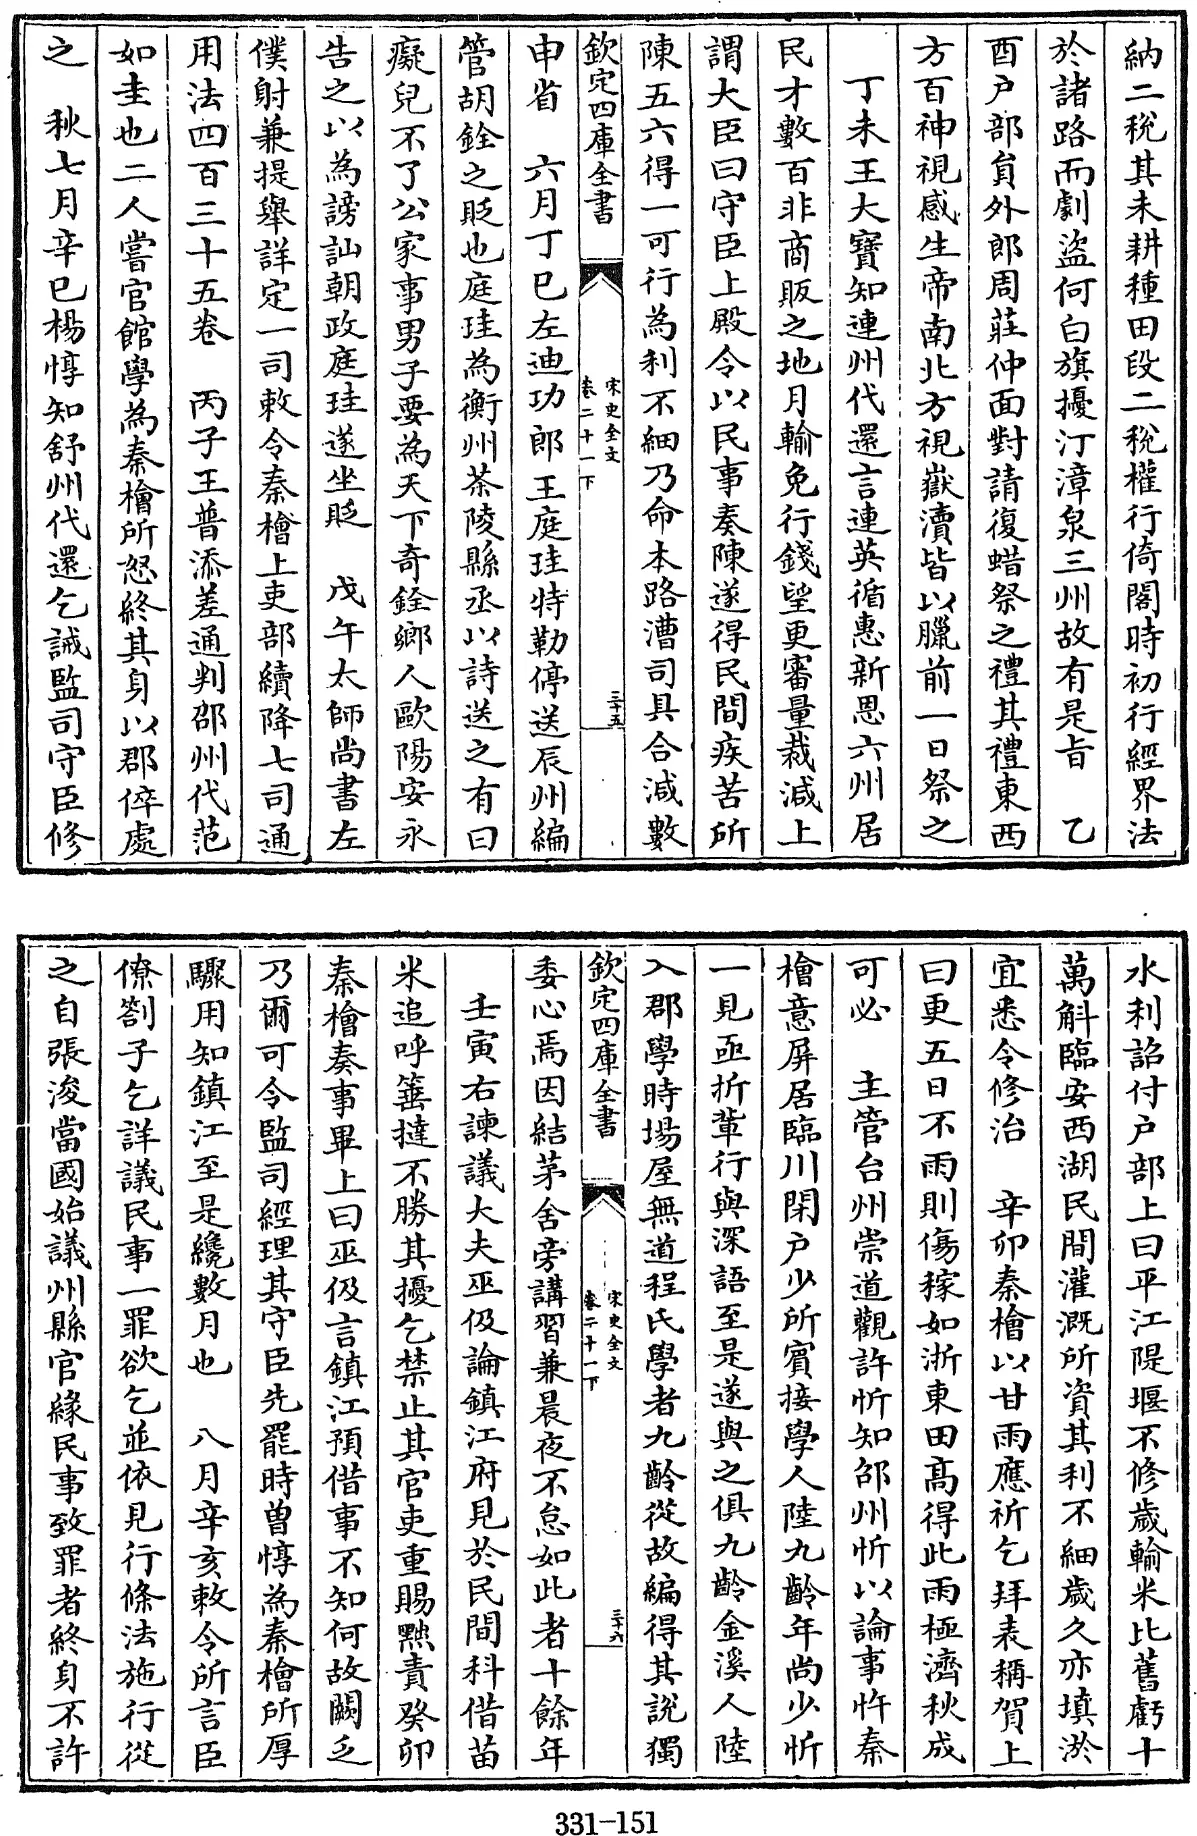 納二稅其未耕種田段二稅權行倚閣時初行經界法
於諸路而劇盜何白旗擾汀漳泉三州故有是旨　乙
酉户部貟外郎周莊仲面對請復蜡祭之禮其禮東西
方百神視感生帝南北方視嶽瀆皆以臘前一日祭之
丁未王大寳知連州代還言連英循惠新恩六州居
民才數百非商販之地月輸免行錢望更審量裁減上
謂大臣曰守臣上殿令以民事奏陳遂得民間疾苦所
陳五六得一可行為利不細乃命本路漕司具合減數
欽定四庫全書
宋史全文
卷二十一下
三十五
申省　六月丁巳左迪功郎王庭珪特勒停送辰州編
管胡銓之貶也庭珪為衡州茶陵縣丞以詩送之有曰
癡兒不了公家事男子要為天下奇銓鄉人歐陽安永
告之以為謗訕朝政庭珪遂坐貶　戊午太師尚書左
僕射兼提舉詳定一司敕令秦檜上吏部續降七司通
用法四百三十五卷　丙子王普添差通判邵州代范
如圭也二人嘗官館學為秦檜所怒終其身以郡倅處
之　秋七月辛巳楊惇知舒州代還乞誡監司守臣修
水利詔付户部上曰平江隄堰不修歲輸米比舊虧十
萬斛臨安西湖民間灌溉所資其利不細歲久亦填淤
宜悉令修治　辛卯秦檜以甘雨應祈乞拜表稱賀上
曰更五日不雨則傷稼如浙東田髙得此雨極濟秋成
可必　主管台州崇道觀許忻知邵州忻以論事忤秦
檜意屏居臨川閉户少所賓接學人陸九齡年尚少忻
一見亟折輩行與深語至是遂與之俱九齡金溪人陸
入郡學時場屋無道程氏學者九齡從故編得其說獨
欽定四庫全書
宋史全文
卷二十一下
三十六
委心焉因結茅舍旁講習兼晨夜不怠如此者十餘年
壬寅右諫議大夫巫伋論鎮江府見於民間科借苗
米追呼箠撻不勝其擾乞禁止其官吏重賜黜責癸卯
秦檜奏事畢上曰巫伋言鎮江預借事不知何故闕乏
乃爾可令監司經理其守臣先罷時曾惇為秦檜所厚
驟用知鎮江至是纔數月也　八月辛亥敕令所言臣
僚劄子乞詳議民事一罪欲乞並依見行條法施行從
之自張浚當國始議州縣官緣民事致罪者終身不許
331-151